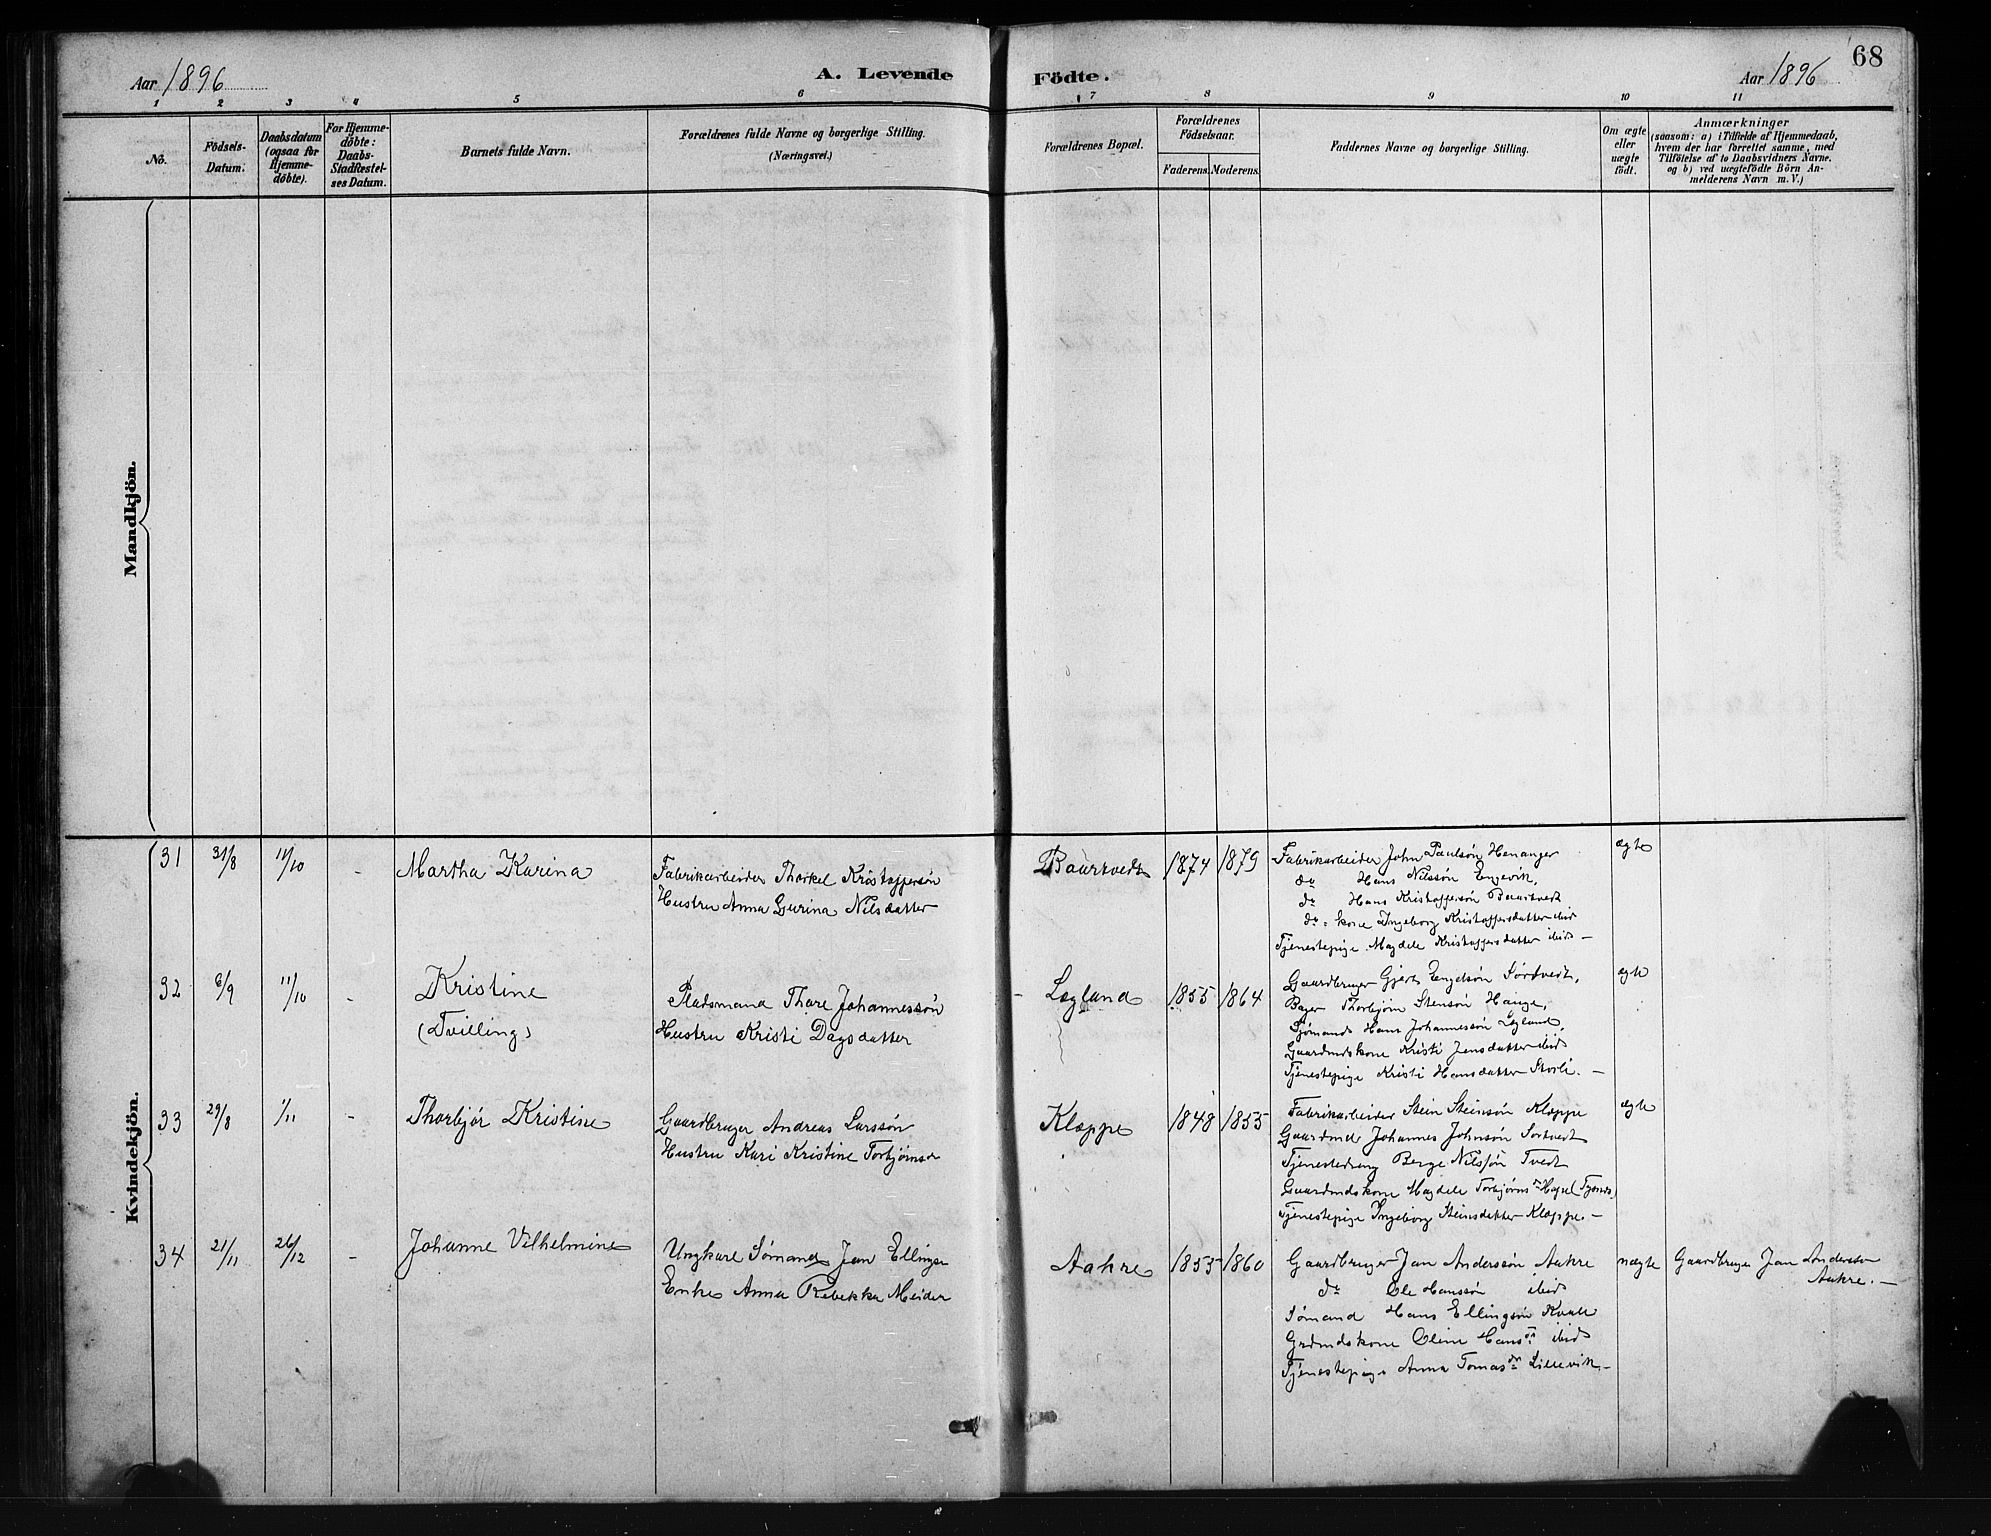 68
Aar 1896
A. Levende Födte.
Aar 1896
1 2 3 4 5 6 7 8 9 10 11
No.
Födsels-Datum.
Daabsdatum (ogsaa for Hjemme-döbte).
For Hjemme-döbte: Daabs-Stadfæstel-ses Datum.
Barnets fulde Navn.
Forældrenes fulde Navne og borgerlige Stilling.
(Næringsvei.)
Forældrenes Bopæl.
Forældrenes Födselsaar.
Faderens. Moderens.
Faddernes Navne og borgerlige Stilling.
Om ægte eller uægte födt.
Anmærkninger
(saasom: a) i Tilfælde af Hjemmedaab,
hvem der har forrettet samme, med
Tilföielse af to Daabsvidners Navne,
og b) ved uægtefödte Börn An-
melderens Navn m. V.)
Mandkjön.
Kvindekjön.
31 31/8 11/10 - Martha Karina
Fabrikarbeider Thorkel Kristoffersøn
Hustru Anna Gurina Nilsdatter
Baurtvedt 1874 1879
Fabrikarbeider John Paulsøn Hananger
do Hans Nilssøn Engevik,
do Hans Kristoffersøn Baurtvedt
do = kone Ingeborg Kristoffersdatter ibid
Tjenestepige Magdele Kristoffersdatter ibid -
ægte
32 6/9 11/10 - Kristine
(Tvilling)
Pladsmand Thore Johannessøn
Hustru Kristi Dagsdatter
- Lægland 1855 1864
Gaardbruger Gjert Engelsøn Sørtvedt,
Bager Thorbjørn Stensøn Hauge,
Sjømand Hans Johannessøn Lægland,
Gaardmdskone Kristi Jensdatter ibid
Tjenestepige Kristi Hansdatter Storli. -
ægte
33 29/8 1/11 - Thorbjør Kristine
Gaardbruger Andreas Larssøn
Hustru Kari Kristine Torbjørnsdr
Kleppe 1848 1855
Fabrikarbeider Stein Steinsøn Kleppe
Gaardmd Johannes Johnsøn Sortvedt
Tjenestedreng Berge Nilssøn Tvedt
Gaardmdskone Magdele Torbjørnsdr
Tjenestepige Ingeborg Steinsdatter Kleppe. -
ægte
34 21/11 26/12 - Johanne Vilhelmine
Ungkarl Sømand Jan Ellingsen
Enke Anna Rebekka Meider
Aahre 1855 1860
Gaardbruger Jan Anderssøn Aahre
do Ole Hanssøn ibid
Sømand Hans Ellingsøn Kvale
Grdmdskone Oline Hansdr ibid
Tjenestepige Anna Tomasdr Lillevik. -
uægte
Gaardbruger Jan Anderssøn
Aahre. -